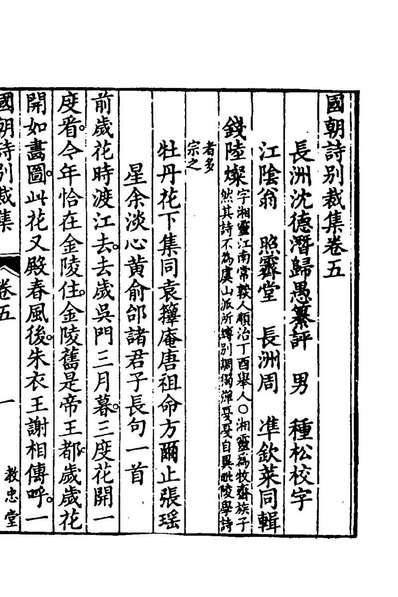 國朝詩別裁集卷五
長洲沈德潛歸愚纂評　男　種松校字
江陰翁　照霽堂　長洲周　準欽萊同輯
錢陸燦字湘靈江南常熟人順治丁酉舉人○湘靈為牧齋族子
然其詩不為虞山派所縛別調獨彈戛戛自異毗陵學詩
者多
宗之
牡丹花下集同袁籜庵唐祖命方爾止張瑤
星余淡心黃俞邰諸君子長句一首
前歲花時渡江去去歲吳門三月暮三度花開一
度看今年恰在金陵住金陵舊是帝王都歲歲花
開如畫圖此花又殿春風後朱衣王謝相傳呼一
國朝詩別裁集　卷五　一　教忠堂